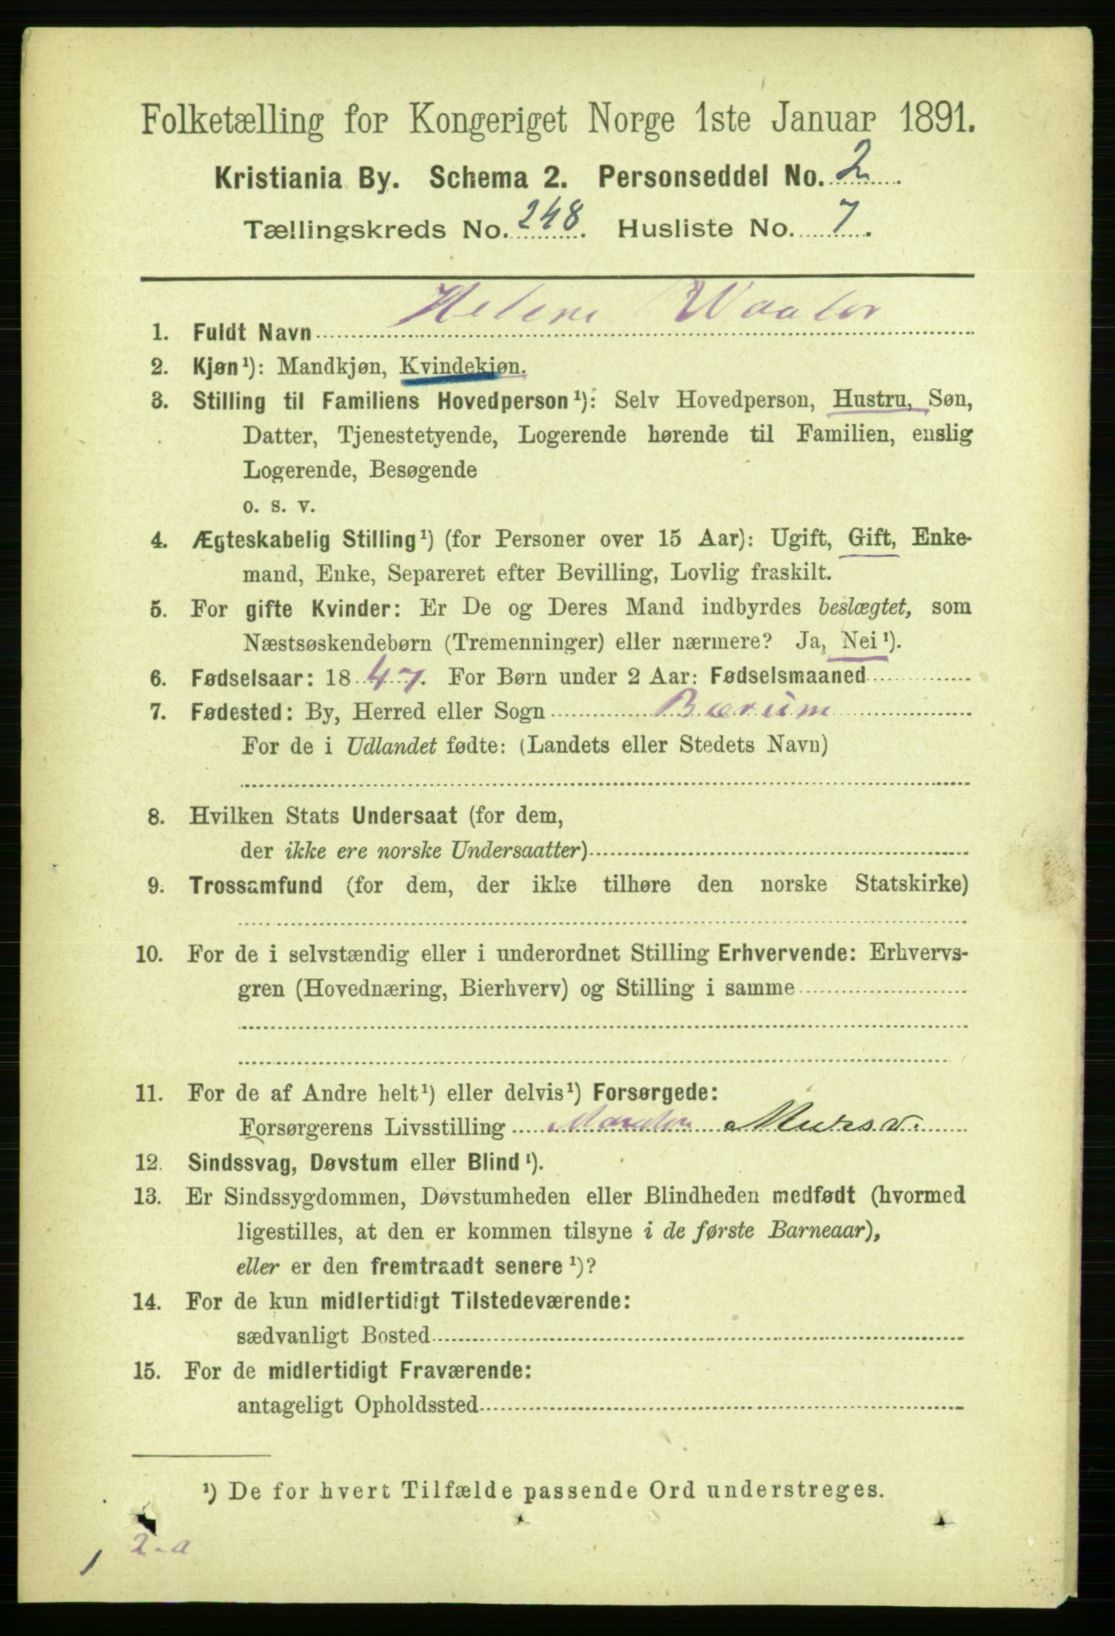 Folketælling for Kongeriget Norge 1ste Januar 1891.
Kristiania By. Schema 2. Personseddel No. 2
Tællingskreds No. 248. Husliste No. 7.
1. Fuldt Navn Helene Waaler
2. Kjøn¹): Mandkjøn, Kvindekjøn.
3. Stilling til Familiens Hovedperson¹): Selv Hovedperson, Hustru, Søn,
Datter, Tjenestetyende, Logerende hørende til Familien, enslig
Logerende, Besøgende
o. s. v.
4. Ægteskabelig Stilling¹) (for Personer over 15 Aar): Ugift, Gift, Enke-
mand, Enke, Separeret efter Bevilling, Lovlig fraskilt.
5. For gifte Kvinder: Er De og Deres Mand indbyrdes beslægtet, som
Næstsøskendebørn (Tremenninger) eller nærmere? Ja, Nei¹).
6. Fødselsaar: 1847. For Børn under 2 Aar: Fødselsmaaned
7. Fødested: By, Herred eller Sogn Bærum
For de i Udlandet fødte: (Landets eller Stedets Navn)
8. Hvilken Stats Undersaat (for dem,
der ikke ere norske Undersaatter)
9. Trossamfund (for dem, der ikke tilhøre den norske Statskirke)
10. For de i selvstændig eller i underordnet Stilling Erhvervende: Erhvervs-
gren (Hovednæring, Bierhverv) og Stilling i samme
11. For de af Andre helt¹) eller delvis¹) Forsørgede:
Forsørgerens Livsstilling Manden Murs v.
12. Sindssvag, Døvstum eller Blind¹).
13. Er Sindssygdommen, Døvstumheden eller Blindheden medfødt (hvormed
ligestilles, at den er kommen tilsyne i de første Barneaar),
eller er den fremtraadt senere¹)?
14. For de kun midlertidigt Tilstedeværende:
sædvanligt Bosted
15. For de midlertidigt Fraværende:
antageligt Opholdssted
¹) De for hvert Tilfælde passende Ord understreges.
2-a
1